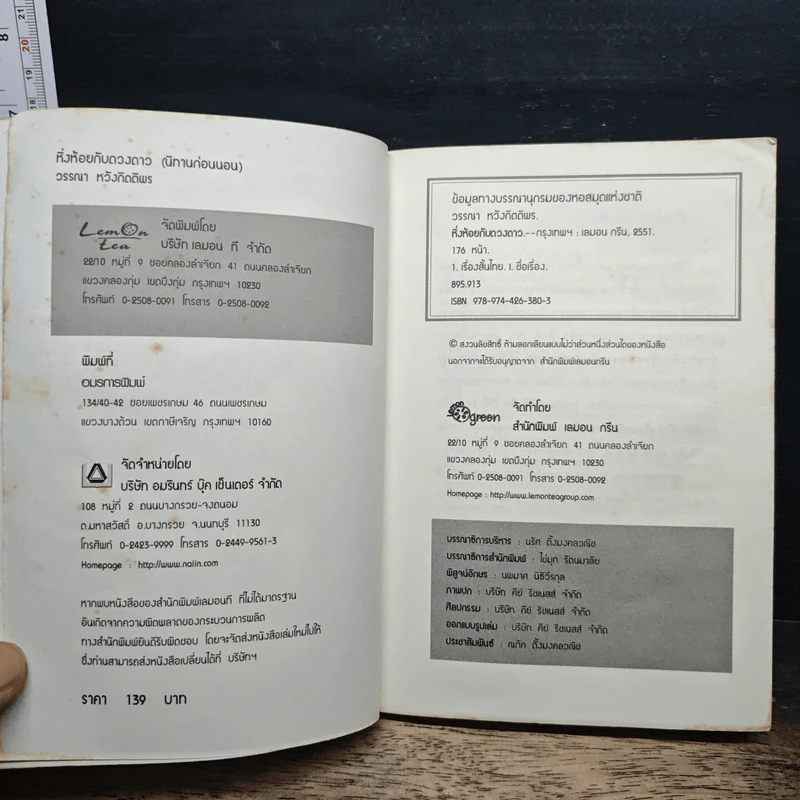 หิ่งห้อยกับดวงดาว (นิทานก่อนนอน)
วรรณา หวังกิตติพร
LemOn tea
จัดพิมพ์โดย
บริษัท เลมอน ที จำกัด
22/10 หมู่ที่ 9 ซอยคลองลำเจียก 41 ถนนคลองลำเจียก
แขวงคลองกุ่ม เขตบึงกุ่ม กรุงเทพฯ 10230
โทรศัพท์ 0-2508-0091 โทรสาร 0-2508-0092
พิมพ์ที่
อมรการพิมพ์
134/40-42 ซอยเพชรเกษม 46 ถนนเพชรเกษม
แขวงบางด้วน เขตภาษีเจริญ กรุงเทพฯ 10160
จัดจำหน่ายโดย
บริษัท อมรินทร์ บุ๊ค เซ็นเตอร์ จำกัด
108 หมู่ที่ 2 ถนนบางกรวย-จงถนอม
ต.มหาสวัสดิ์ อ.บางกรวย จ.นนทบุรี 11130
โทรศัพท์ 0-2423-9999 โทรสาร 0-2449-9561-3
Homepage : http://www.naiin.com
หากพบหนังสือของสำนักพิมพ์เลมอนที ที่ไม่ได้มาตรฐาน
อันเกิดจากความผิดพลาดของกระบวนการผลิต
ทางสำนักพิมพ์ยินดีรับผิดชอบ โดยจะจัดส่งหนังสือเล่มใหม่ไปให้
ซึ่งท่านสามารถส่งหนังสือเปลี่ยนได้ที่ บริษัทฯ
ราคา 139 บาท
ข้อมูลทางบรรณานุกรมของหอสมุดแห่งชาติ
วรรณา หวังกิตติพร.
หิ่งห้อยกับดวงดาว.--กรุงเทพฯ : เลมอน กรีน, 2551.
176 หน้า.
1. เรื่องสั้นไทย. I. ชื่อเรื่อง.
895.913
ISBN 978-974-426-380-3
© สงวนลิขสิทธิ์ ห้ามลอกเลียนแบบไม่ว่าส่วนหนึ่งส่วนใดของหนังสือ
นอกจากจะได้รับอนุญาตจาก สำนักพิมพ์เลมอนกรีน
green
จัดทำโดย
สำนักพิมพ์ เลมอน กรีน
22/10 หมู่ที่ 9 ซอยคลองลำเจียก 41 ถนนคลองลำเจียก
แขวงคลองกุ่ม เขตบึงกุ่ม กรุงเทพฯ 10230
โทรศัพท์ 0-2508-0091 โทรสาร 0-2508-0092
Homepage : http://www.lemonteagroup.com
บรรณาธิการบริหาร : นริศ ตั้งมงคลวณิช
บรรณาธิการสำนักพิมพ์ : ไข่มุก รัตนมาลัย
พิสูจน์อักษร : นพมาศ นิธิวีรกุล
ภาพปก : บริษัท คีย์ ริชเนสส์ จำกัด
ศิลปกรรม : บริษัท คีย์ ริชเนสส์ จำกัด
ออกแบบรูปเล่ม : บริษัท คีย์ ริชเนสส์ จำกัด
ประชาสัมพันธ์ : ณภัค ตั้งมงคลวณิช